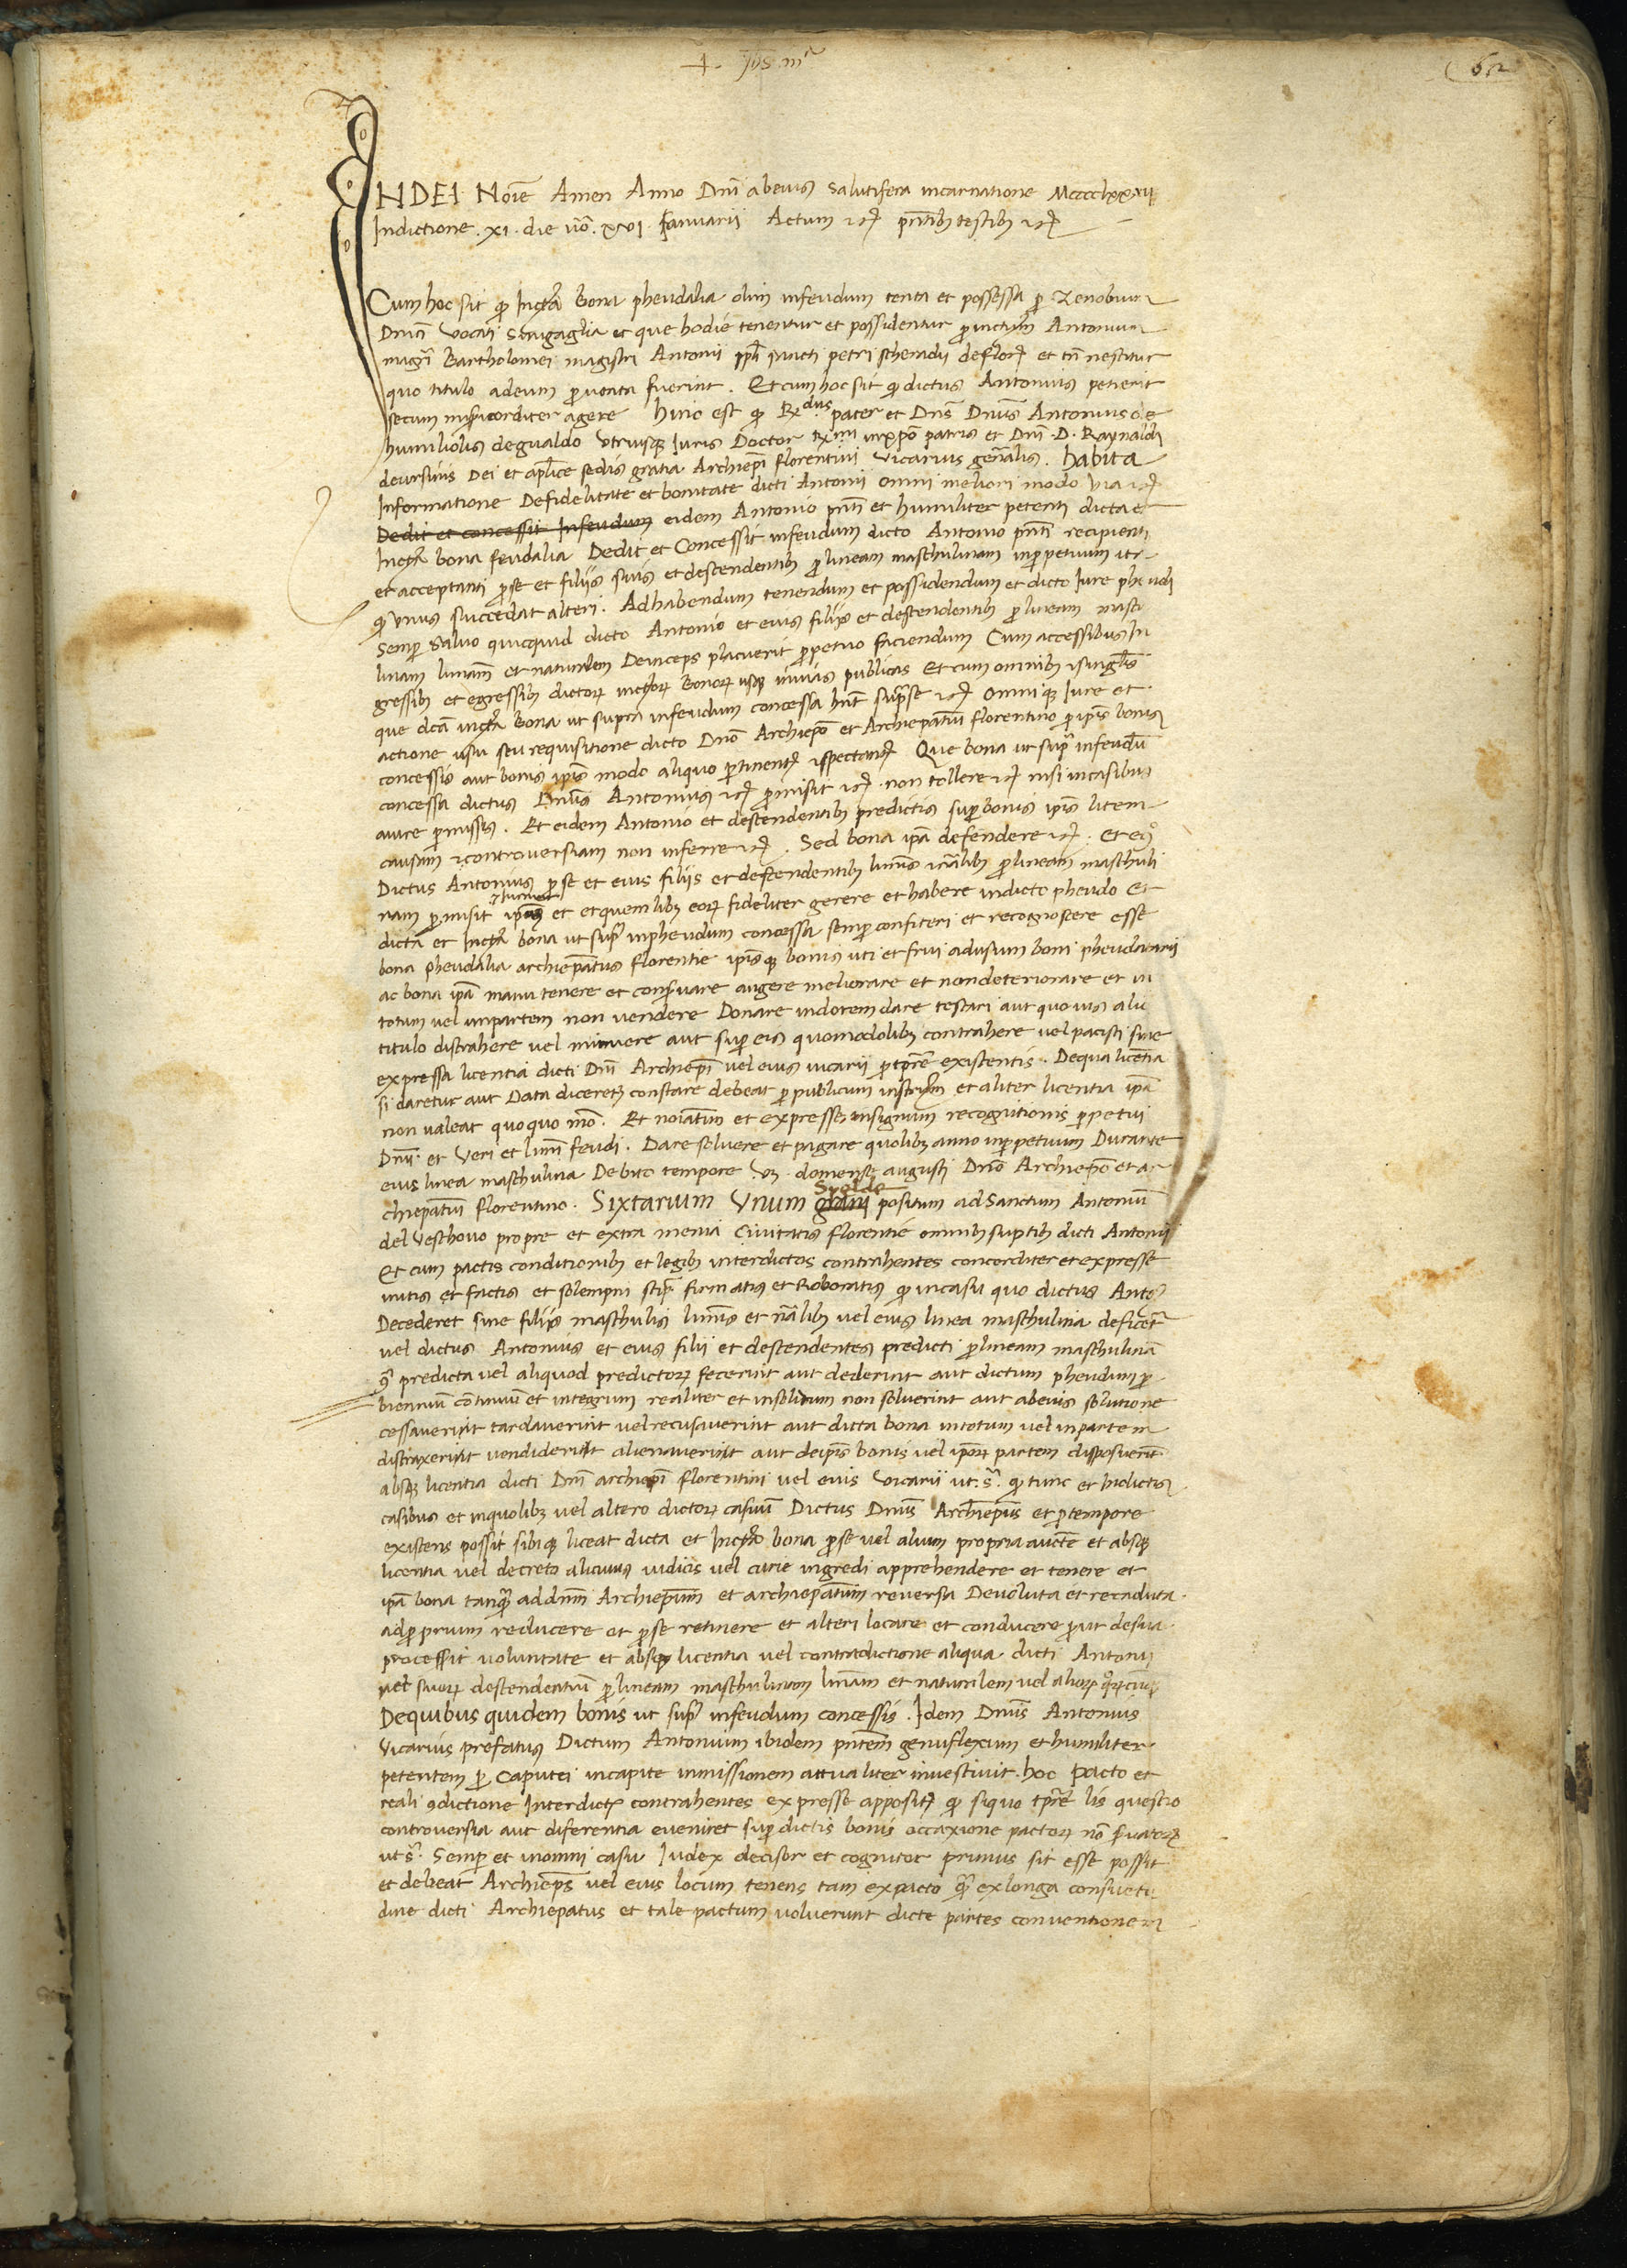 +. yħs. mᵃ
62
IN DEI Noīe Amen Anno Dn̄i ab eius salutifera incarnatione Mcccclxxxxii
Indictione .xi. die v̄o .xvi. Januarii Actum etc̄ pn̄tibȝ testibȝ etc̄
Cum hoc sit qᵈ bona pheudalia olim in feudum tenta et possessa ꝑ Zenobium
vocati ac que hodie tenentur et possidentur ꝑ Antonium
magr̄i Bartholomei magistri Antonii petri de floꝝ et tn̄ nescitur
quo titulo ad eum ꝑventa fuerint . Et cum hoc sit qᵈ dictus Antonius petierit
secum mis̄icorditer agere hinc est qᵈ R̄dus pater et Dn̄s Dn̄us Antonius de
humiliolis de gualdo Utriusqȝ Iuris Doctor in xp̄o patris et Dn̄i .D. Raynaldi
de ursinis Dei et ap̄lice sedis gratia Archiep̄i florentini Vicarius gen̄alis . habita
Informatione De fidelitate et bonitate dicti Antonii omni meliori modo via etc̄
Dedit et concessit Infeudum eidem Antonio pn̄ti et humiliter petenti dicta et
bona feudalia Dedit et Concessit infeudum dicto Antonio pn̄ti recipienti
et acceptanti ꝓ se et filiis suis et descendentibȝ ꝑ lineam maschulinam inꝑpetuum ita
qᵈ unus succedat alteri . Ad habendum tenendum et possidendum et dicto Iure pheudi
semꝑ salvo quicquid dicto Antonio et eius filiis et descendentibȝ ꝑ lineam mascu
linam et naturalem Deinceps placuerit ꝑpetuo faciendum Cum accessibus In
gressibȝ et egressibȝ dictoꝝ bonoꝝ usqȝ in vias publicas Et cum omnibȝ et singl̄is
que dc̄a bona ut supra infeudum concessa hn̄t supra se etc̄ omniqȝ Iure et
actione usu seu requisitione dicto Dn̄o Archiep̄o et Archiep̄atui florentino ꝓ ip̄is bonis
concessis aut bonis ip̄is modo aliquo ꝑtinentȝ et spectantȝ Que bona ut supra infeudū
concessa dictus Dn̄us Antonius etc̄ ꝓmisit etc̄ non tollere etc̄ nisi in casibus
a iure ꝑmissis . Et eidem Antonio et descendentibȝ predictis suꝑ bonis ip̄is litem
causam et controversiam non inferre etc̄ . Sed bona ip̄a defendere etc̄ . et eqᵒ
Dictus Antonius ꝓ se et eius filiis et descendentibȝ ꝑ lineam maschuli
nam ꝓmisit et et quemlibȝ eoꝝ fideliter gerere et habere in dicto pheudo et
dicta et bona ut supᵃ in pheudum concessa semꝑ confiteri et recognoscere esse
bona pheudalia archiep̄atus florentie ip̄isqȝ bonis uti et frui ad usum boni pheudatarii
ac bona ip̄a manu tenere et conservare augere meliorare et non deteriorare et in
totum vel in partem non vendere Donare in dotem dare testari aut quovis alio
titulo distrahere vel minuere aut suꝑ eis quomodolibȝ contrahere vel pacisci sine
expressa licentia dicti Dn̄i Archiep̄i vel eius vicarii ꝓ tp̄re existentis . De qua licentia
si daretur aut Data diceretȝ constare debeat ꝑ publicum et aliter licentia ip̄a
non valeat quoquo mō . Et noīatim et expresse in signum recognitionis ꝑpetui
Dn̄ii et Veri et feudi . Dare solvere et pagare quolibȝ anno inꝑpetuum Durante
eius linea maschulina Debito tempore vȝ . de mense augusti Dn̄o Archiep̄o et ar
chiep̄atui florentino . Sixtarium Unum grani positum ad Sanctum Antonium
del Veschovo prope et extra menia Civitatis florentie omnibȝ sūptibȝ dicti Antonii
Et cum pactis conditionibȝ et legibȝ inter dictos contrahentes concorditer et expresse
initis et factis et solempni stip̄ firmatis et Roboratis qᵈ in casu quo dictus Antoˢ
Decederet sine filiis maschulis et nālibȝ vel eius linea maschulina deficerȝ
vel dictus Antonius et eius filii et descendentes predicti ꝑ lineam maschulinā
9ᵃ predicta vel aliquod predictoꝝ fecerint aut dederint aut dictum pheudum ꝑ
biennium cōtinuum et integrum realiter et in solidum non solverint aut ab eius solutione
cessaverint tardaverint vel recusaverint aut dicta bona in totum vel in partem
distraxerint vendiderint alienaverint aut de ip̄is bonis vel ip̄oꝝ partem disposuerīt
absqȝ licentia dicti Dn̄i archiep̄i florentini vel eius Vicarii ut sᵃ . qᵈ tunc et in dictis
casibus et in quolibȝ vel altero dictoꝝ casuū Dictus Dn̄us Archiep̄us et ꝓ tempore
existens possit sibiqȝ liceat dicta et bona ꝑ se vel alium propria aucte et absqȝ
licentia vel decreto alicuius iudicis vel curie ingredi apprehendere et tenere et
ip̄a bona tanqᵃ ad dnum Archiep̄um et archiep̄atum reversa Devoluta et recaduta
ad ꝓprium reducere et ꝓ se retinere et alteri locare et conducere ꝓut de sua
processit voluntate et absqȝ licentia vel contradictione aliqua dicti Antonii
vel suoꝝ descendentiū ꝑ lineam maschulinam et naturalem vel alioꝝ
De quibus quidem bonis ut supᵃ infeudum concessis . Idem Dn̄us Antonius
Vicarius prefatus Dictum Antonium ibidem pn̄tem genuflexum et humiliter
petentem ꝑ Caputei in capite inmissionem attualiter investivit . hoc pacto et
reali 9dictione Inter dictȝ contrahentes expresse appositȝ qᵈ si quo tp̄re lis questio
controversia aut diferentia eveniret suꝑ dictis bonis occaxione pactoꝝ nō ẜvatoꝝ
ut sᵃ . Semꝑ et in omni casu Iudex decisor et cognitor primus sit esse possit
et debeat Archiep̄s vel eius locum tenens tam ex pacto qᵃ ex longa consuetu
dine dicti Archiep̄atus et tale pactum voluerunt dicte partes conventionem